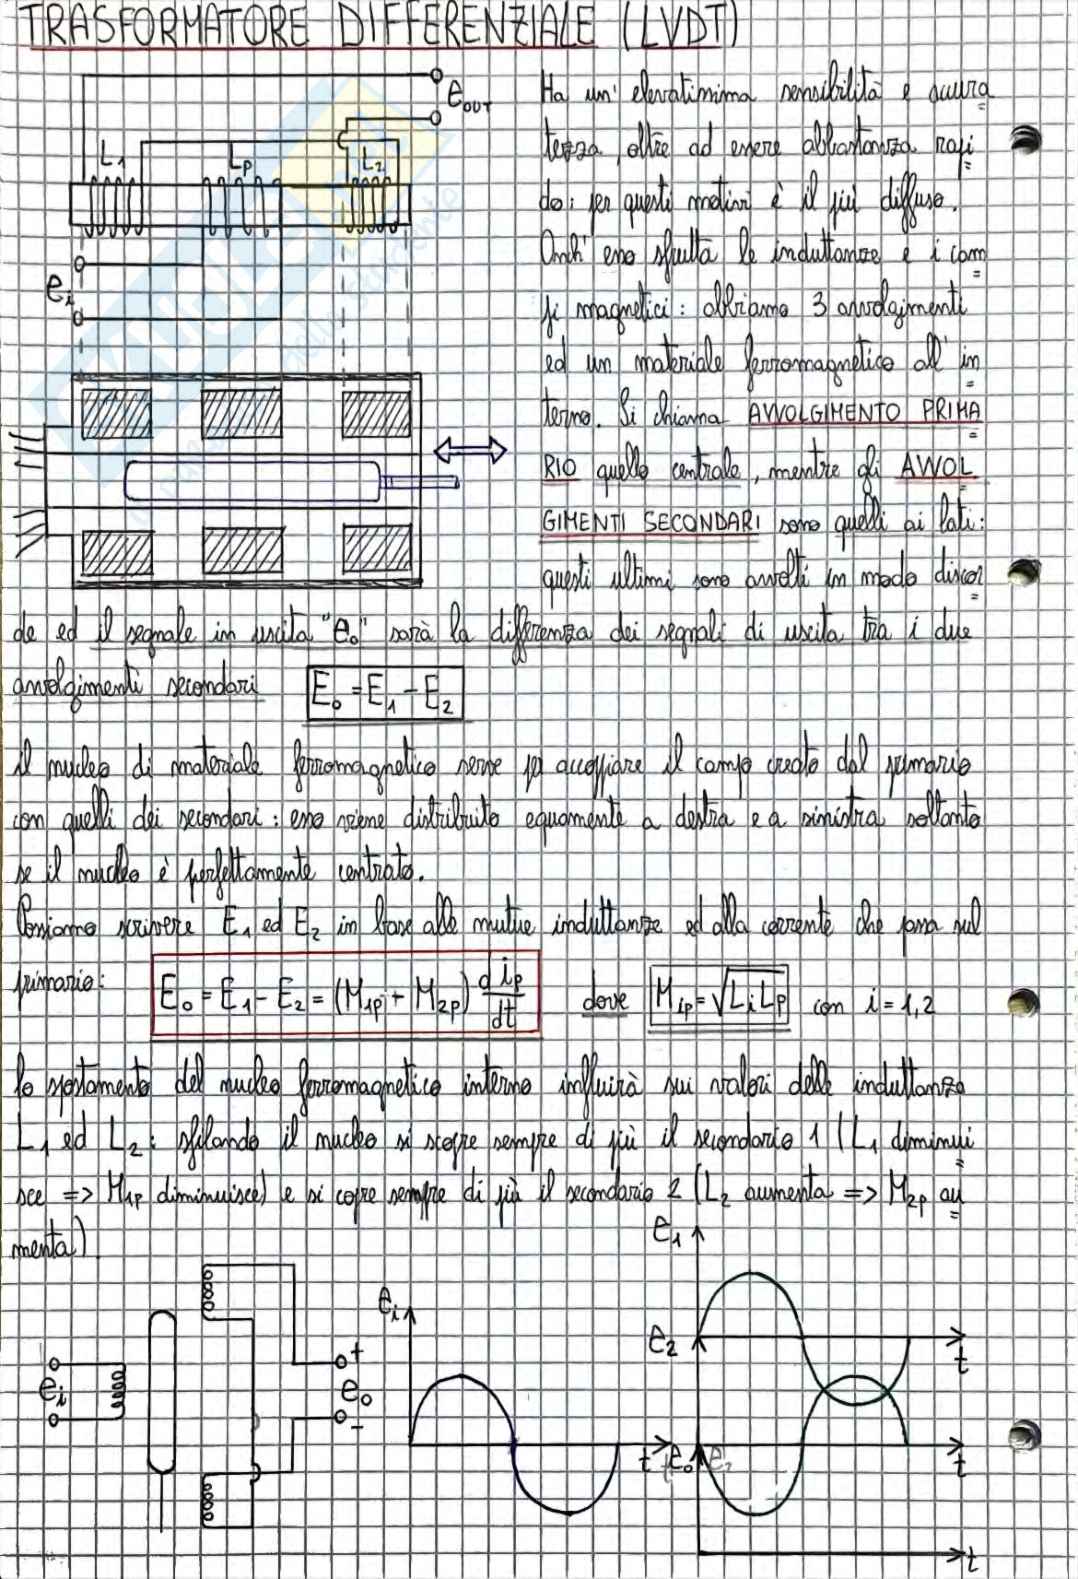 TRASFORMATORE DIFFERENZIALE (LVDT)
Ha un' elevatissima sensibilità e accura
tezza, oltre ad essere abbastanza rapi
do: per questi motivi è il più diffuso.
Anch' esso sfrutta le induttanze e i cam
pi magnetici: abbiamo 3 avvolgimenti
ed un materiale ferromagnetico all' in
terno. Si chiama AVVOLGIMENTO PRIMA
RIO quello centrale, mentre gli AVVOL
GIMENTI SECONDARI sono quelli ai lati:
questi ultimi sono avvolti in modo discor
eOUT
L1
LP
L2
ei
de ed il segnale in uscita "eo" sarà la differenza dei segnali di uscita tra i due
avvolgimenti secondari E0 = E1 - E2
il nucleo di materiale ferromagnetico serve per accoppiare il campo creato dal primario
con quelli dei secondari: esso viene distribuito equamente a destra e a sinistra soltanto
se il nucleo è perfettamente centrato.
Possiamo scrivere E1 ed E2 in base alle mutue induttanze ed alla corrente che passa sul
primario: E0 = E1 - E2 = (M1p + M2p) dip/dt dove Mip = √LiLp con i = 1,2
lo spostamento del nucleo ferromagnetico interno influirà sui valori delle induttanze
L1 ed L2: sfilando il nucleo si scopre sempre di più il secondario 1 (L1 diminui
sce => M1p diminuisce) e si copre sempre di più il secondario 2 (L2 aumenta => M2p au
menta).
ei
+
eo
-
ei
t
e1
e2
t
eo
t
t